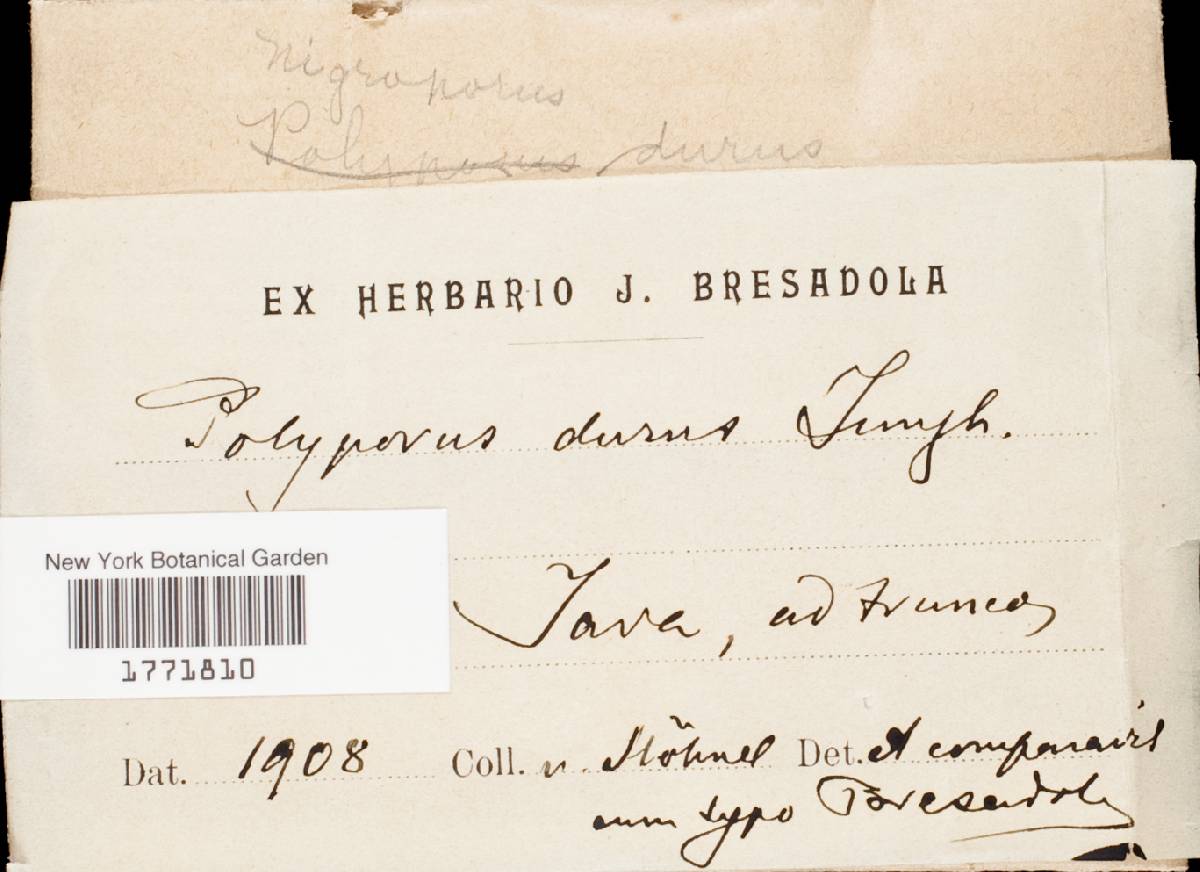 Nigroporus
Polyporus durus
EX HERBARIO J. BRESADOLA
Polyporus durus Jungh.
New York Botanical Garden
1771810
Java, ad truncos
Dat. 1908 Coll. v. Höhnel Det. et comparavit
cum typo Bresadola